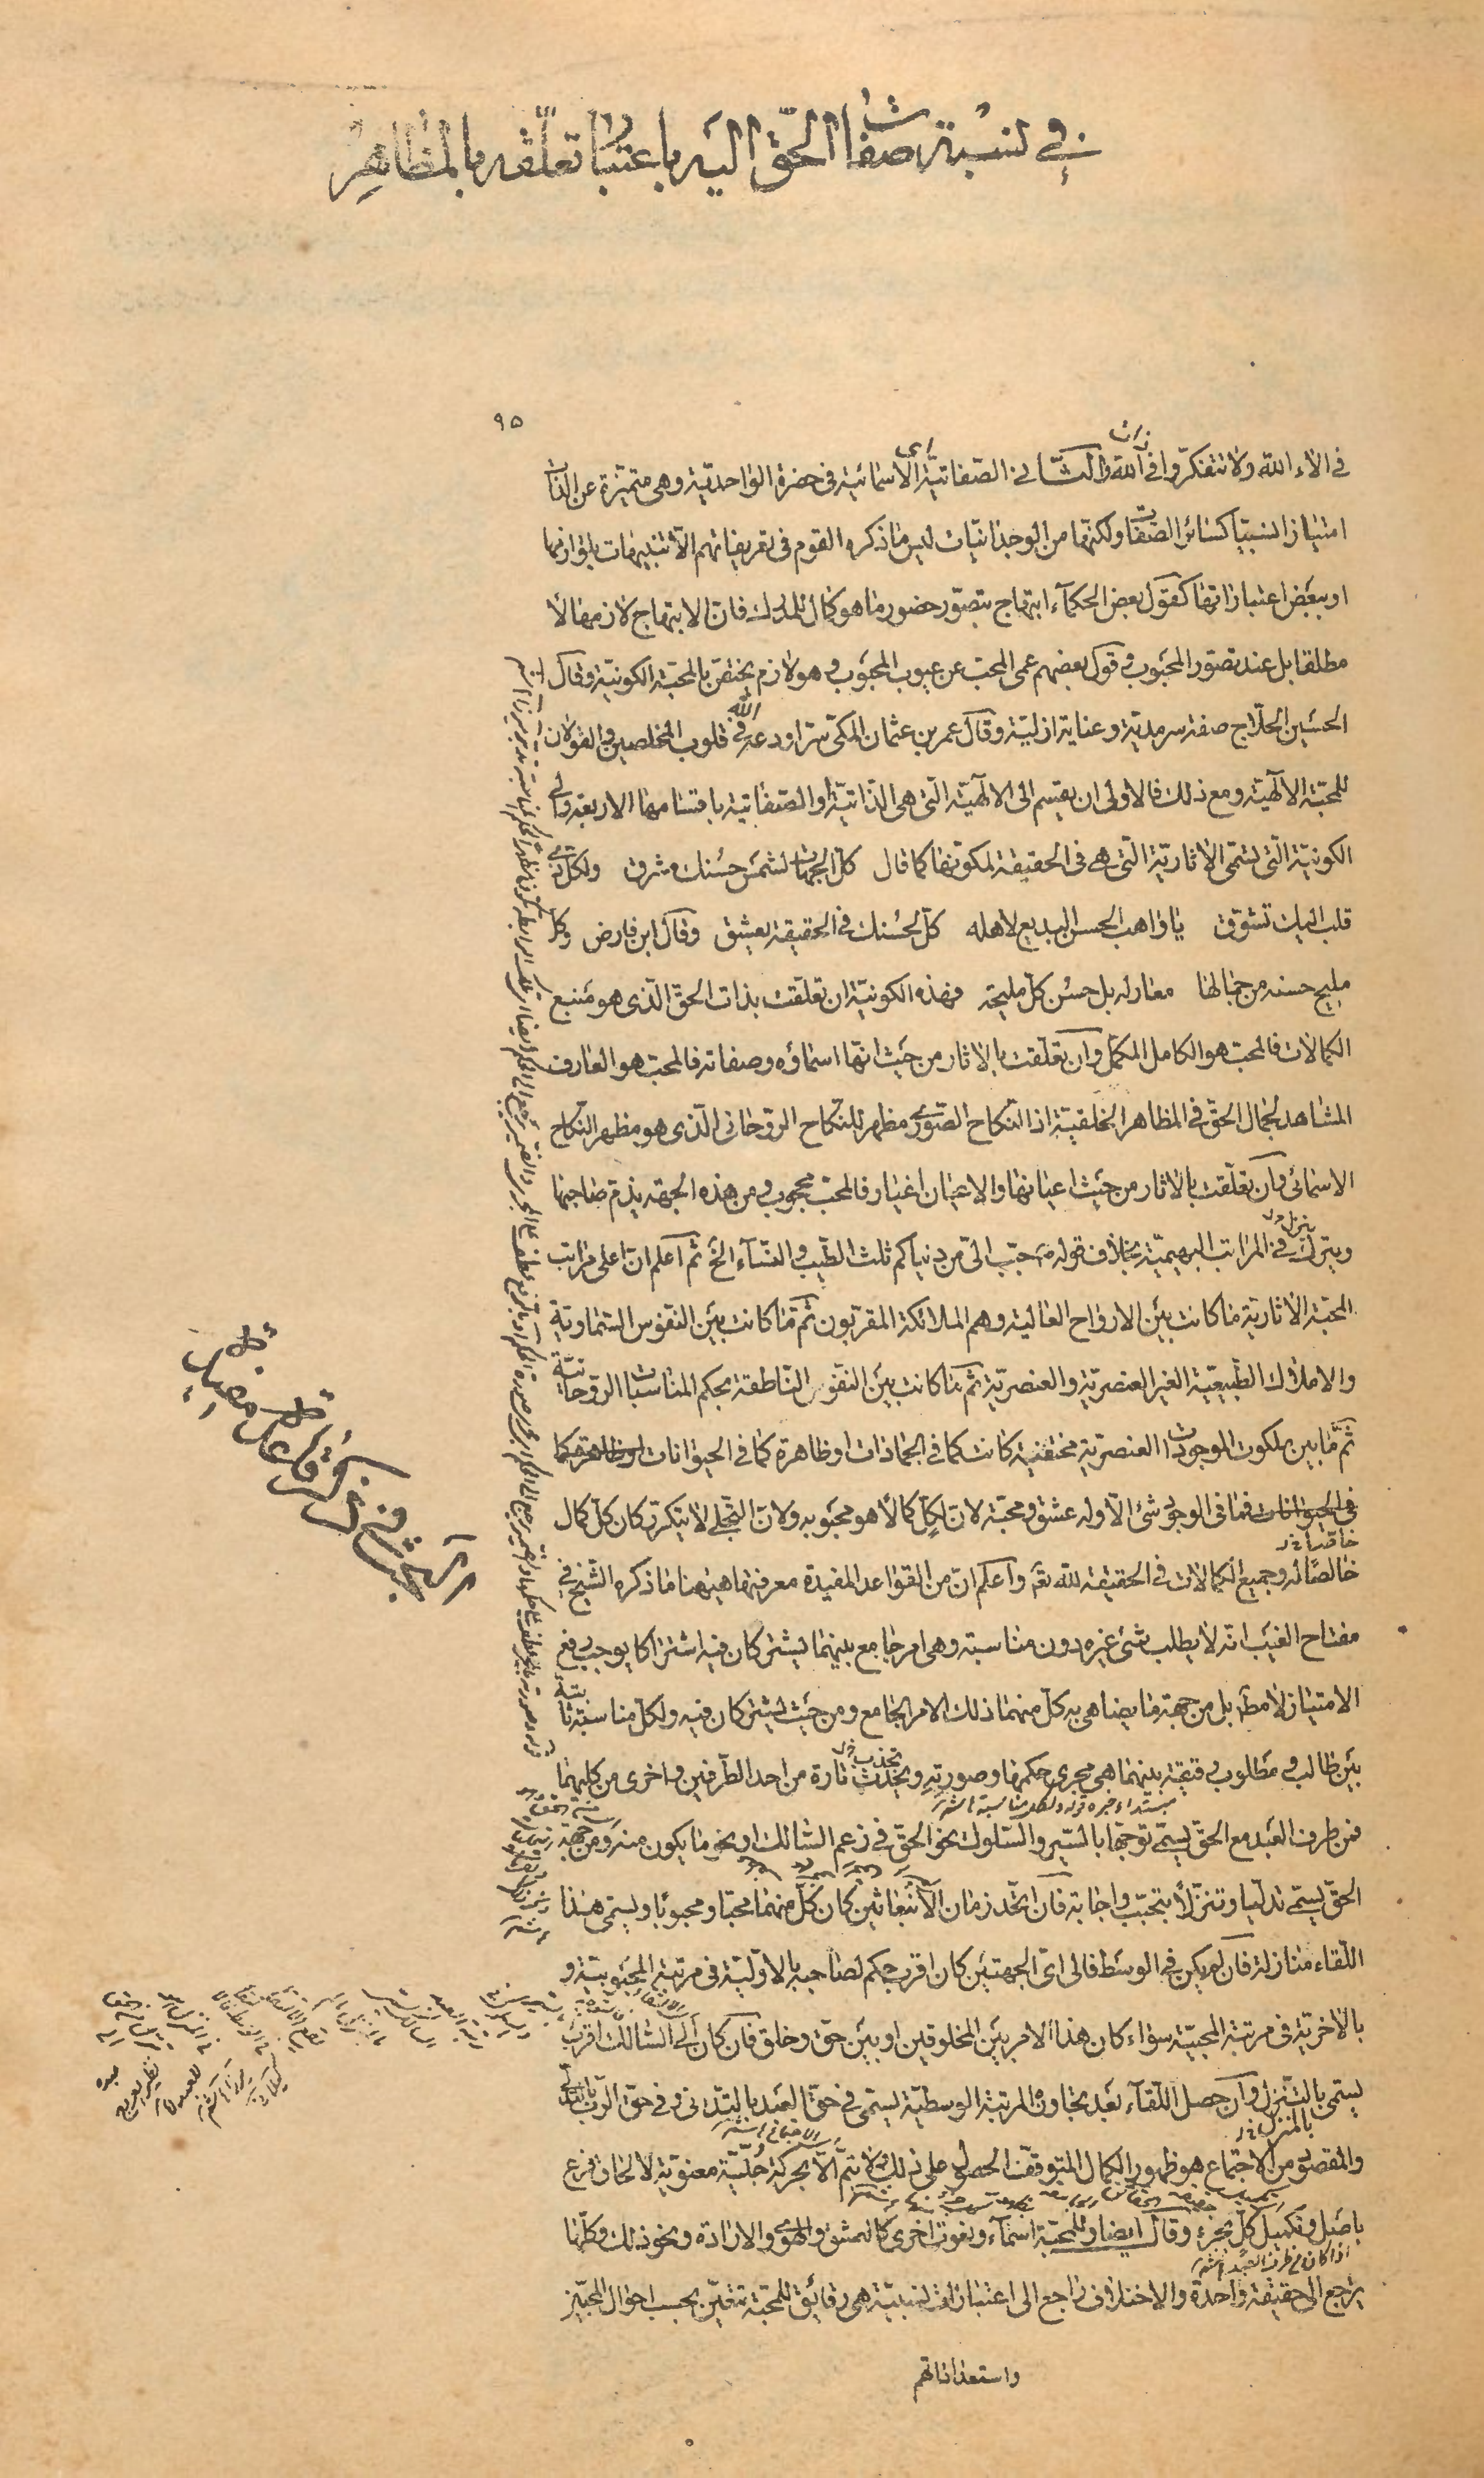 في نسبة صفات الحق اليه باعتبار تعلقه بالمظاهر
٩٥
في الاء الله ولا تتفكروا في ذات الله والثاني الصفاتية اى الاسمائية في حضرة الواحدية وهي متميزة عن الذات
امتيازا نسبيا كسائر الصفات ولكنها من الوجدانيات ليس ما ذكره القوم في تعريفاتهم الا تنبيهات بلوازمها
او ببعض اعتباراتها كقول بعض الحكماء ابتهاج بتصور حضور ما هو كمال للمدرك فان الابتهاج لازمها لا
مطلقا بل عند تصور المحبوب وقول بعضهم عمى المحب عن عيوب المحبوب وهو لازم يختص بالمحبة الكونية وقال
الحسين الحلاج صفة سرمدية وعناية ازلية وقال عمر بن عثمان المكي سر اودعه الله في قلوب المخلصين والقولان
للمحبة الالهية ومع ذلك فالاولى ان يقسم الى الالهية التي هي الذاتية او الصفاتية باقسامها الاربعة والى
الكونية التي تسمى الاثارية التي هي في الحقيقة لمكونها كما قال كل الجهات لشمس حسنك مشرق ولكل ذى
قلب اليك تشوق يا واهب الحسن البديع لاهله كل لحسنك في الحقيقة يعشق وقال ابن فارض وكل
مليح حسنه من جمالها معار له بل حسن كل مليحة فهذه الكونية ان تعلقت بذات الحق الذى هو منبع
الكمالات فالمحب هو الكامل المكمل وان تعلقت بالاثار من حيث انها اسماؤه وصفاته فالمحب هو العارف
المشاهد لجمال الحق في المظاهر الخلقية اذ النكاح الصورى مظهر للنكاح الروحاني الذى هو مظهر النكاح
الاسمائى وان تعلقت بالاثار من حيث اعيانها والاعيان اغيار فالمحب محجوب ومن هذه الجهة يذم صاحبها
وينزل في المراتب البهيمية بخلاف قوله ص حبب الى من دنياكم ثلث الطيب والنساء الخ ثم اعلم ان اعلى مراتب
المحبة الاثارية ما كانت بين الارواح العالية وهم الملائكة المقربون ثم ما كانت بين النفوس السماوية
والاملاك الطبيعية الغير العنصرية والعنصرية ثم ما كانت بين النفوس الناطقة بحكم المناسبات الروحانية
ثم ما بين ملكوت الموجودات العنصرية مختفية كانت كما في الجمادات او ظاهرة كما في الحيوانات او ظاهرة كما
في الحيوانات فما في الوجود شئ الا وله عشق ومحبة لان لكل كمالا هو محبوبه ولان التجلى لا يتكرر كان كل كمال
خالصا له وجميع الكمالات في الحقيقة لله تعـ واعلم ان من القواعد المفيدة معرفتها هيهنا ما ذكره الشيخ في
مفتاح الغيب انه لا يطلب شئ غيره دون مناسبة وهي امر جامع بينهما يشتركان فيه اشتراكا يوجب رفع
الامتياز لا مطـ بل من جهة ما يضاهى به كل منهما ذلك الامر الجامع ومن حيث يشتركان فيه ولكل مناسبة ثابتة
بين طالب ومطلوب رقيقة بينهما هي مجرى حكمها وصورته ويحدث تارة من احد الطرفين واخرى من كليهما
مبتداء خبره قوله ولكل مناسبة
فمن طرف العبد مع الحق يسمى توجها بالسير والسلوك نحو الحق في زعم السالك او نحو ما يكون منه ومن جهة
الحق يسمى تدليا وتنزلا بتحبب واجابة فان اتحد زمان الانبعاثين كان كل منهما محبا ومحبوبا ويسمى هذا
اللقاء منازلة فان لم يكن في الوسط فالى اى الجهتين كان اقرب حكم لصاحبه بالاولية في مرتبة المحبوبية و
بالاخرية في مرتبة المحبية سواء كان هذا الامر بين المخلوقين او بين حق وخلق فان كان الى السالك اقرب
يسمى بالتنزل وان حصل اللقاء بعد تجاوز المرتبة الوسطية يسمى في حق العبد بالتدنى وفي حق الرب بالتدلى
والمقصود من الاجتماع هو ظهور الكمال المتوقف الحصول على ذلك ولا يتم الا بحركة حبية معنوية لالحاق فرع
باصل وتكميل كل بجزء وقال ايضا وللمحبة اسماء ونعوت اخرى كالعشق والهوى والارادة ونحو ذلك وكلها
اذا كان من طرف العبد
يرجع الى حقيقة واحدة والاختلاف راجع الى اعتبارات نسبية هي رقائق للمحبة تتعين بحسب احوال المحبين
واستعداداتهم